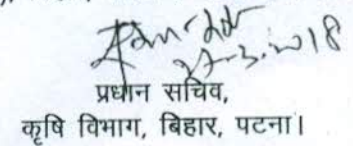 27-3-2018
प्रधान सचिव,
कृषि विभाग, बिहार, पटना।